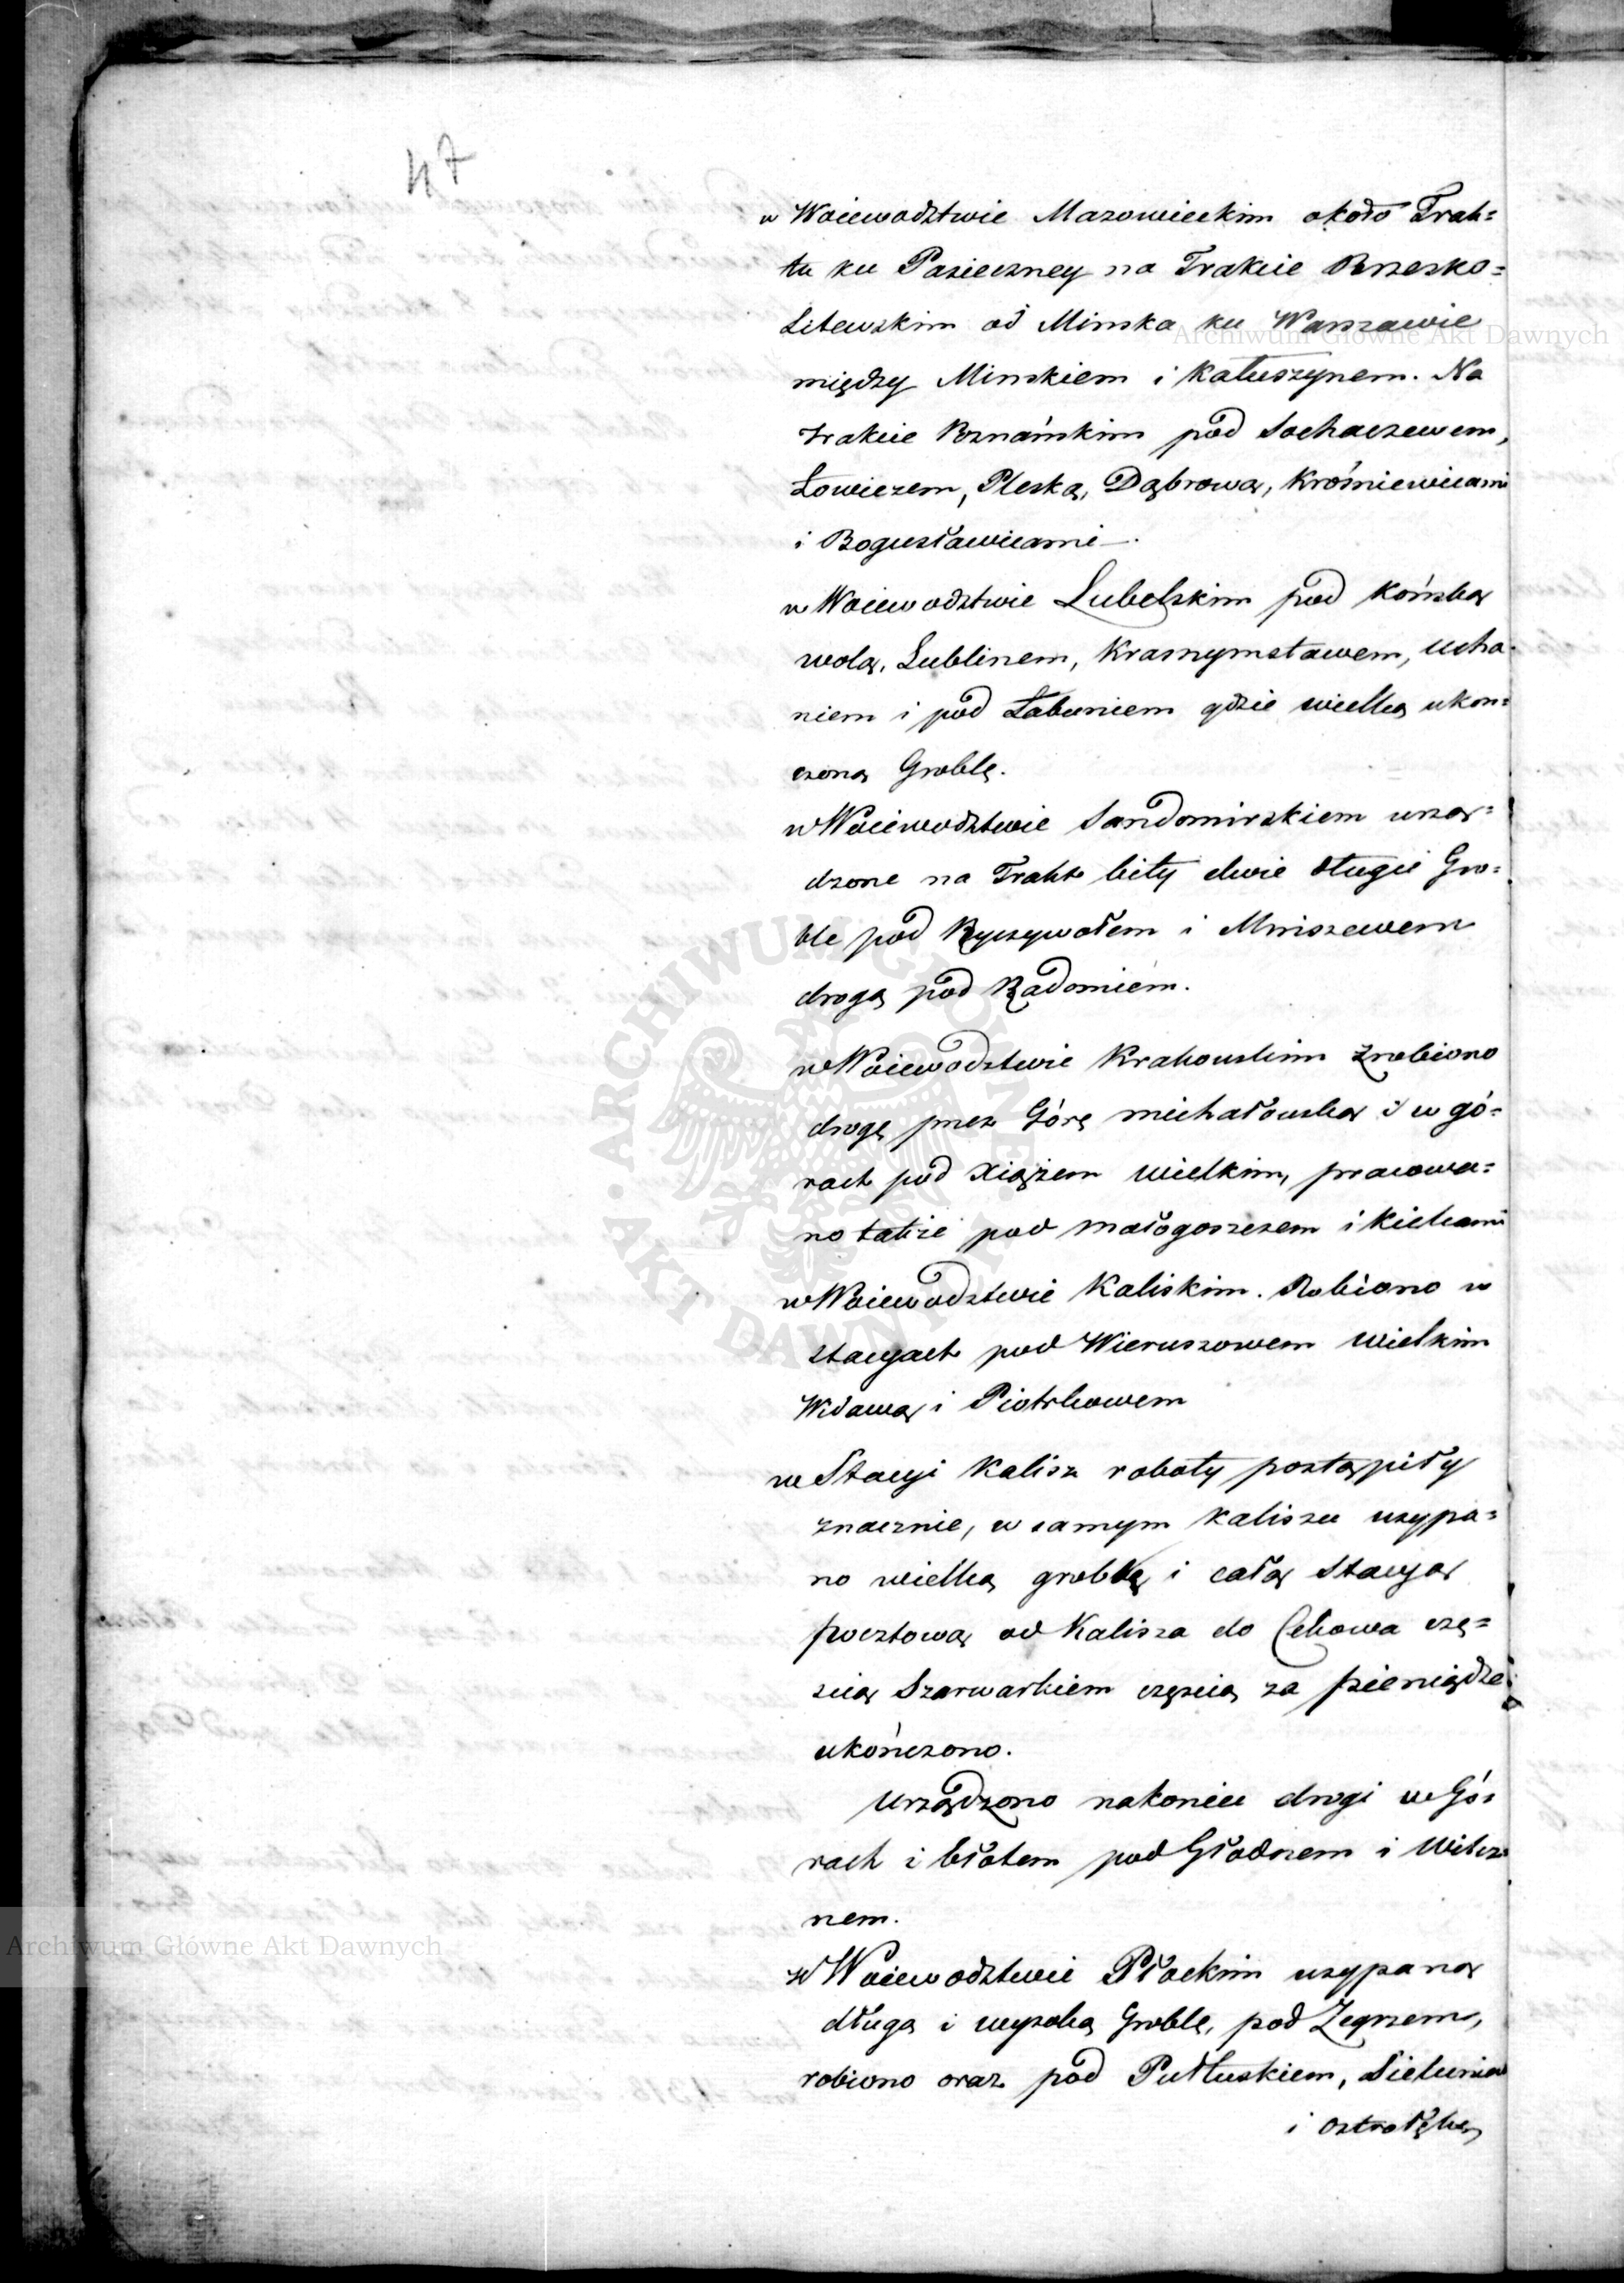 47
w Woiewodztwie Mazowieckim około Trak=
tu ku Pasieczney na Trakcie Brzesko=
Litewskim od Minska ku Warszawie
między Minskiem i Kałuszynem. Na
trakcie Poznańskim pod Sochaczewem,
Łowiczem, Pleską, Dąbrową, Krośniewicami
i Bogusławicami.
w Woiewodztwie Lubelskim pod Końską
wolą, Lublinem, Krasnymstawem, Ucha=
niem i pod Łabuniem gdzie wielką ukon=
czoną Groblę.
w Woiewodztwie Sandomirskiem urzą=
dzone na Trakt bity dwie długie Gro=
ble pod Ryczywołem i Mniszewem
drogą pod Radomiem.
w Woiewodztwie Krakowskim Zrobiono
drogę przez Górę michałowską i w gó=
rach pod Xiążem wielkim, pracowa=
no także pod małogoszczem i Kielcami
w Woiewodztwie Kaliskim. Robiono w
stacyach pod Wieruszowem wielkim
Widawą i Piotrkowem
w Stacyi Kalisz roboty postąpiły
znacznie, w samym Kaliszu usypa=
no wielką groblę i całą Stacyą
pocztową od Kalisza do Cekowa czę=
scią Szarwarkiem częscią za pieniądze
ukończono.
Urządzono nakoniec drogi w Gó=
rach i błotem pod Głodnem i Wilcz
nem.
w Woiewodztwie Płockim usypaną
długą i wysoką Groblę, pod Zegrzem,
robiono oraz pod Pułtuskiem, Sielunią
i Ostrołęką
Archiwum Główne Akt Dawnych
ARCHIWUM GŁÓWNE · AKT DAWNYCH ·
Archiwum Główne Akt Dawnych